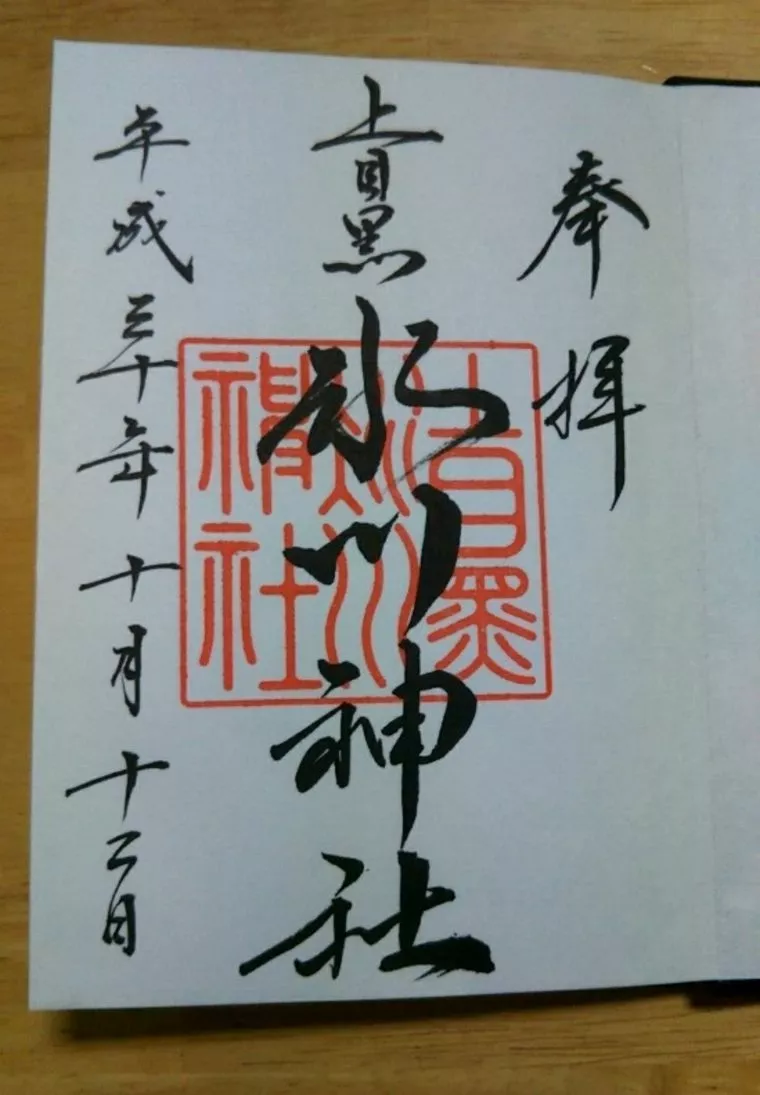 奉拝
上目黒氷川神社
平成三十年十月十二日
上目黒
氷川
神社